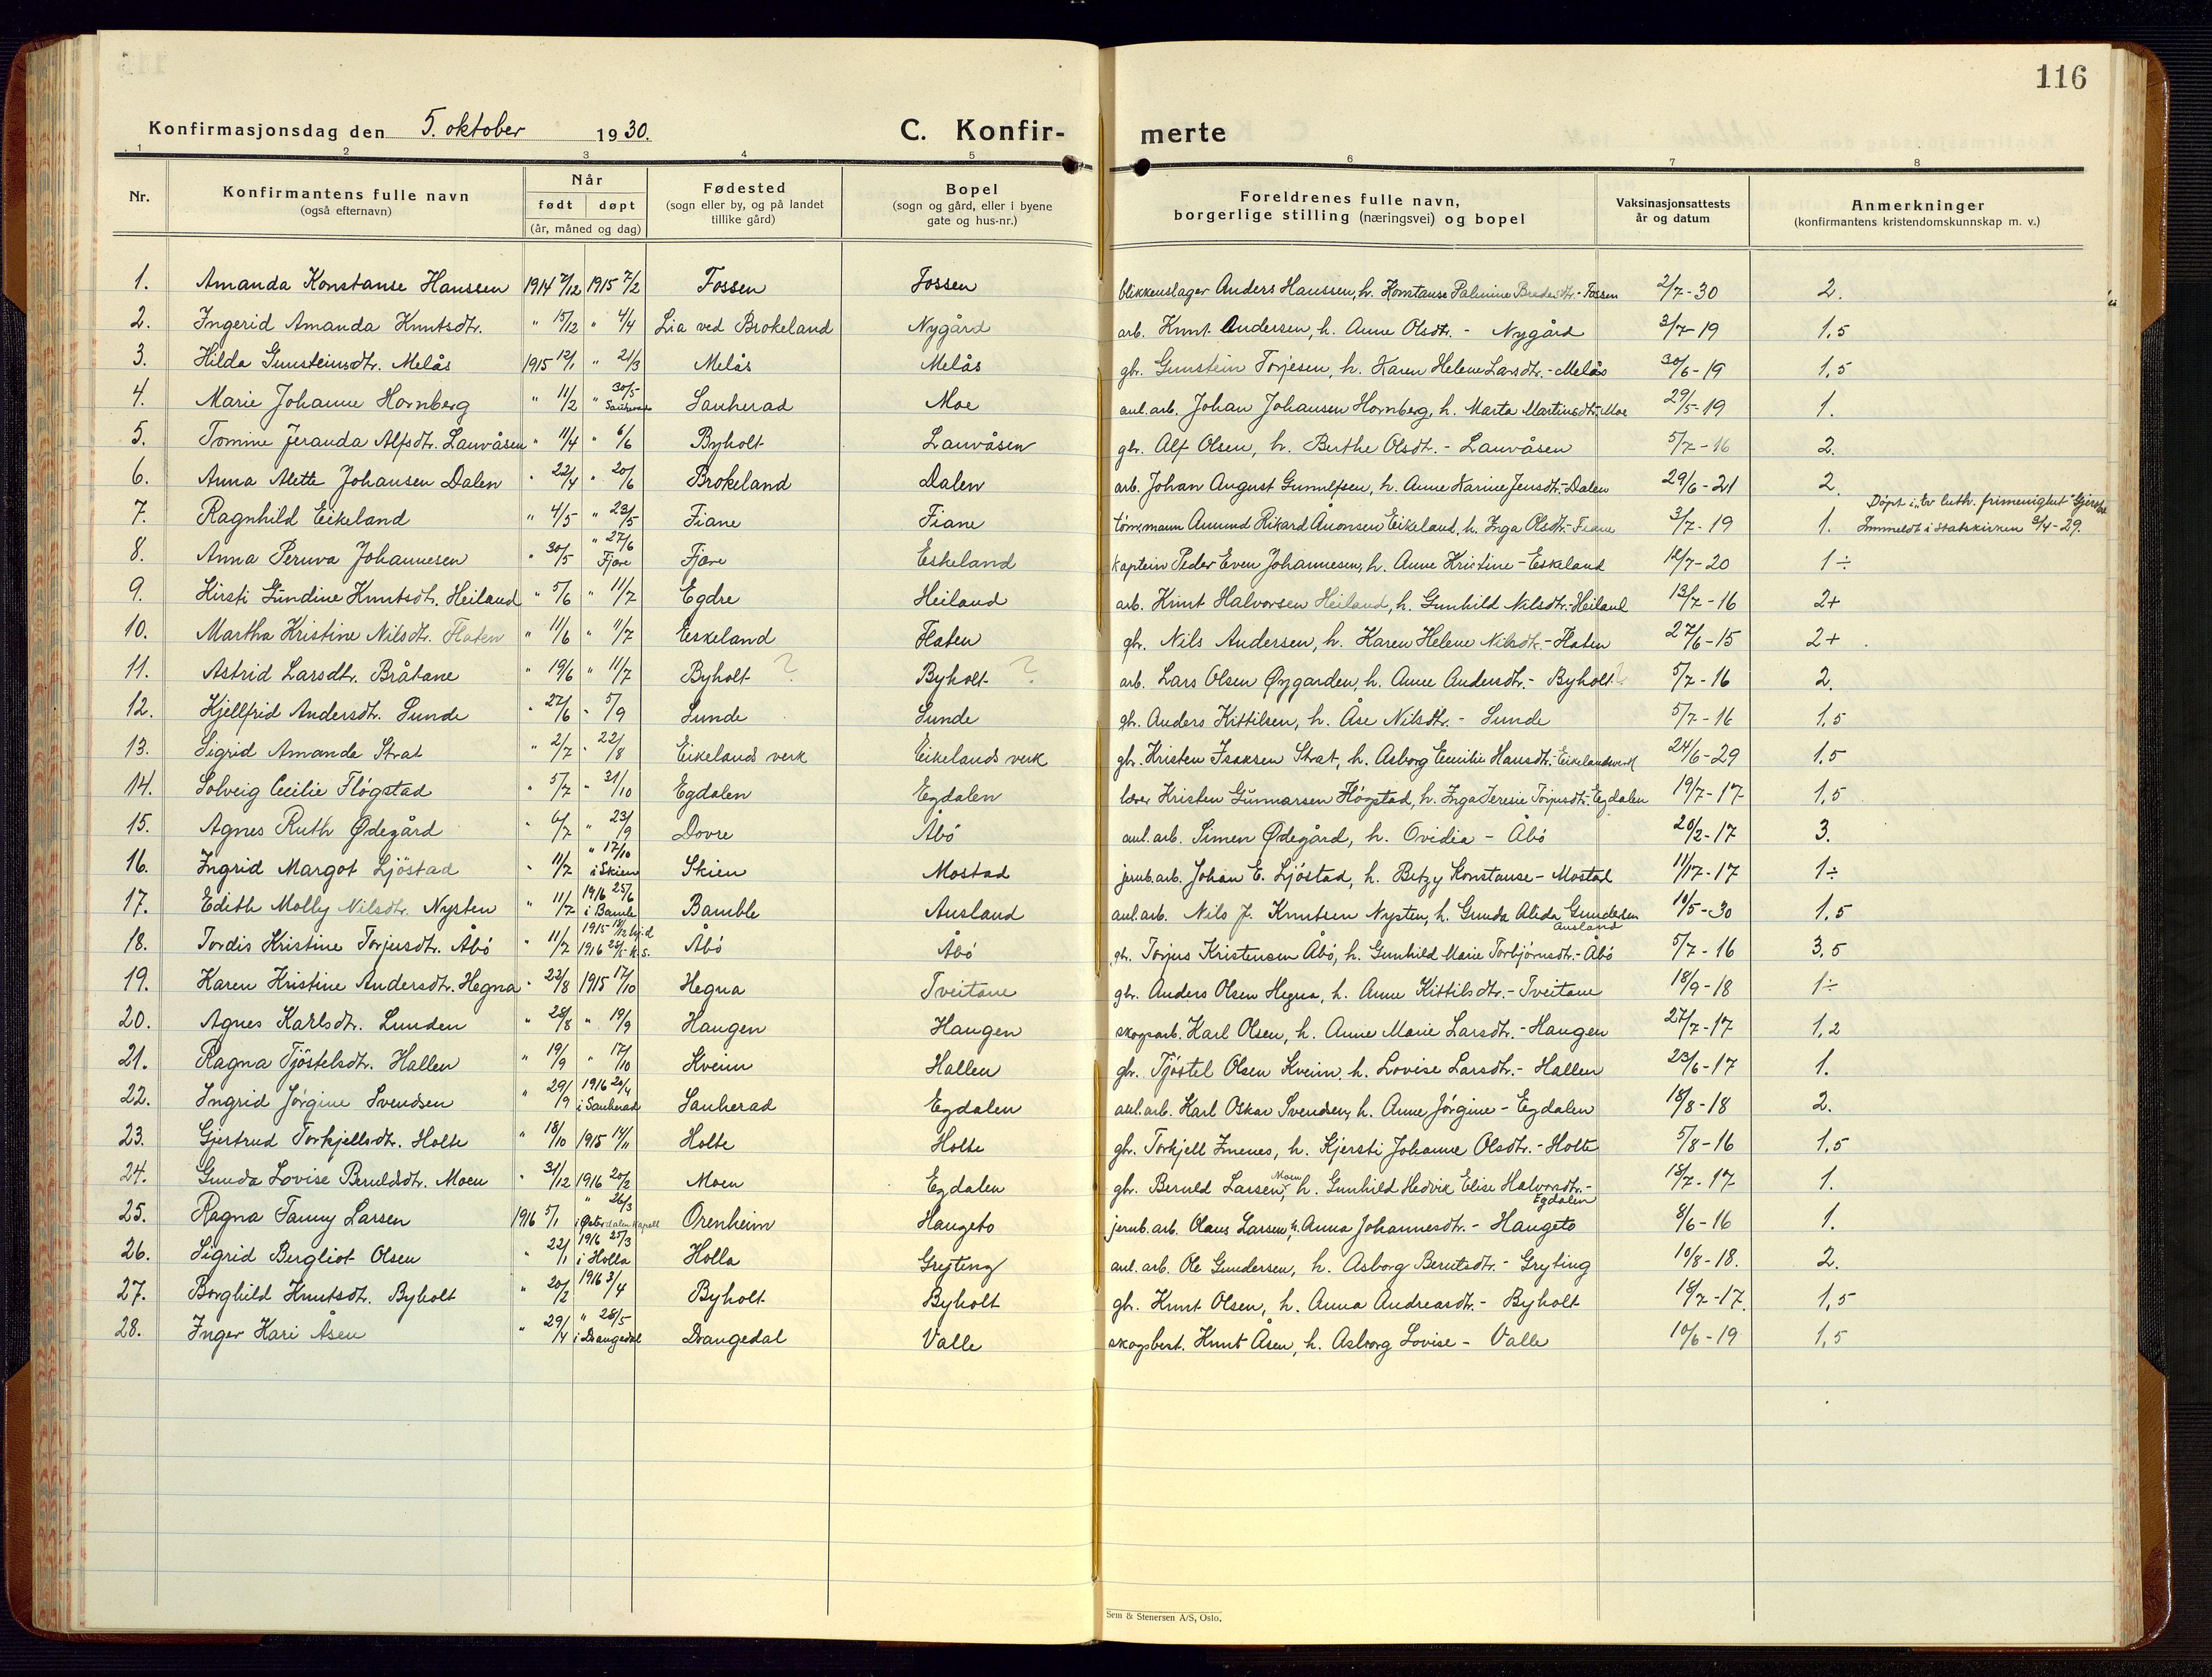 116
Konfirmasjonsdag den 5. oktober 1930. C. Konfir- merte
1 2 3 4 5 6 7 8
Nr. Konfirmantens fulle navn (også efternavn) Når født døpt (år, måned og dag) Fødested (sogn eller by, og på landet tillike gård) Bopel (sogn og gård, eller i byene gate og hus-nr.) Foreldrenes fulle navn, borgerlige stilling (næringsvei) og bopel Vaksinasjonsattests år og datum Anmerkninger (konfirmantens kristendomskunnskap m. v.)
1. Amanda Konstanse Hanssen 1914 7/12 1915 7/2 Fossen Fossen blikkenslager Anders Hanssen, h. Konstanse Palmine Bredesdtr. - Fossen 2/7-30 2.
2. Ingerid Amanda Knutsdtr. " 15/12 " 4/4 Lia ved Brokeland Nygård arb. Knut Andersen, h. Anne Olsdtr. - Nygård 3/7-19 1,5
3. Hilda Gunsteinsdtr. Melås 1915 12/1 " 21/3 Melås Melås gbr. Gunstein Torjesen, h. Karen Helene Larsdtr. - Melås 30/6-19 1,5
4. Marie Johanne Hornberg " 11/2 " 30/5 Sauherad Sauherad Moe anl. arb. Johan Johansen Hornberg, h. Marta Martinsdtr. Moe 29/5-19 1.
5. Tomine Jeranda Alfsdtr. Lauvåsen " 11/4 " 6/6 Byholt Lauvåsen gbr. Alf Olsen, h. Berthe Olsdtr. - Lauvåsen 5/7-16 2.
6. Anna Alette Johansen Dalen " 22/4 " 20/6 Brokeland Dalen arb. Johan August Gunulfsen, h. Anne Karine Jensdtr. - Dalen 29/6-21 2
7. Ragnhild Eikeland " 4/5 " 23/5 Fiane Fiane tömmermann Amund Rikard Ånonsen Eikeland, h. Inga Olsdtr. - Fiane 3/7-19 1. Döpt i "ev. luth. frimenighet" Gjerstad Innmeldt i statskirken 9/4-29.
8. Anna Peruva Johannesen " 30/5 " 27/6 Fjære Fjære Eskeland kaptein Peder Even Johannesen, h. Anne Kristine - Eskeland 12/7-20 1÷
9. Kirsti Gundine Knutsdtr. Heiland " 5/6 " 11/7 Egdre Heiland arb. Knut Halvorsen Heiland, h. Gunhild Nilsdtr. - Heiland 13/7-16 2+
10. Martha Kristine Nilsdtr. Flaten " 11/6 " 11/7 Eskeland Flaten gbr. Nils Andersen, h. Karen Helene Nilsdtr. - Flaten 27/6-15 2+
11. Astrid Larsdtr. Bråtane " 19/6 " 11/7 Byholt ? Byholt ? arb. Lars Olsen Øygarden, h. Anne Andersdtr. - Byholt ? 5/7-16 2.
12. Kjellfrid Andersdtr. Sunde " 27/6 " 5/9 Sunde Sunde gbr. Anders Kittilsen, h. Åse Nilsdtr. - Sunde 5/7-16 1,5
13. Sigrid Amanda Strat " 2/7 " 22/8 Eikelands verk Eikelands verk gbr. Kristen Isaksen Strat, h. Asborg Emilie Hansdtr. - Eikelandsverk 24/6-29 1,5
14. Solveig Cecilie Flögstad " 5/7 " 31/10 Egdalen Egdalen lærer Kristen Gunnarsen Flögstad, h. Inga Teresie Torjusdtr. - Egdalen 19/7-17 1,5
15. Agnes Ruth Ødegård " 6/7 " 23/9 Dovre Åbö anl. arb. Simen Ødegård, h. Ovidia - Åbö 20/2-17 3.
16. Ingrid Margot Ljöstad " 11/7 " 17/10 i Skien Skien Mostad jernb. arb. Johan E. Ljöstad, h. Betzy Konstanse - Mostad 11/17-17 1÷
17. Edith Molly Nilsdtr. Nysten " 11/7 1916 25/6 i Bamle Bamble Ausland anl. arb. Nils J. Knutsen Nysten, h. Gunda Alida Gundersen Ausland 10/5-30 1,5
18. Tordis Kristine Torjusdtr. Åbö " 11/7 1915 18/12 hj.d 1916 25/5 k.s. Åbö Åbö gbr. Torjus Kristensen Åbö, h. Gunhild Marie Torbjörnsdtr. - Åbö 5/7-16 3,5
19. Karen Kristine Andersdtr. Hegna " 22/8 1915 17/10 Hegna Tveitane gbr. Anders Olsen Hegna, h. Anne Kittilsdtr. - Tveitane 18/9-18 1÷
20. Agnes Karlsdtr. Lunden " 28/8 " 19/9 Haugen Haugen skogsarb. Karl Olsen, h. Anne Marie Larsdtr. - Haugen 27/7-17 1,2
21. Ragna Tjöstelsdtr. Hallen " 19/9 " 17/10 Kveim Hallen gbr. Tjöstel Olsen Kveim, h. Lovise Larsdtr. - Hallen 23/6-17 1.
22. Ingrid Jörgine Svendsen " 29/9 1916 20/4 i Sauherad Sauherad Egdalen anl. arb. Karl Oskar Svendsen, h. Anne Jörgine - Egdalen 18/8-18 2.
23. Gjertrud Torkjellsdtr. Holte " 18/10 1915 14/11 Holte Holte gbr. Torkjell Imenes, h. Kjersti Johanne Olsdtr. - Holte 5/8-16 1,5
24. Gunda Lovise Beruldsdtr. Moen " 31/12 1916 20/2 Moen Egdalen gbr. Beruld Larsen Moen, h. Gunhild Hedvik Elise Halvorsdtr. - Egdalen 18/7-17 1.
25. Ragna Fanny Larsen 1916 5/1 " 26/3 i Østerdalen kapell Orenheim Haugeto jernb. arb. Olaus Larsen, h. Anna Johannesdtr. - Haugeto 8/6-16 1.
26. Sigrid Bergliot Olsen " 22/1 1916 25/3 i Holla Holla Gryting anl. arb. Ole Gundersen, h. Asborg Berntsdtr. - Gryting 10/8-18. 2.
27. Borghild Knutsdtr. Byholt " 20/2 1916 3/4 Byholt Byholt gbr. Knut Olsen, h. Anna Andreasdtr. - Byholt 18/7-17. 1,5
28. Inger Kari Åsen " 29/4 " 28/5 i Drangedal Drangedal Valle skogsbest. Knut Åsen, h. Asborg Lovise - Valle 10/6-19 1,5
Sem & Stenersen A/S, Oslo.